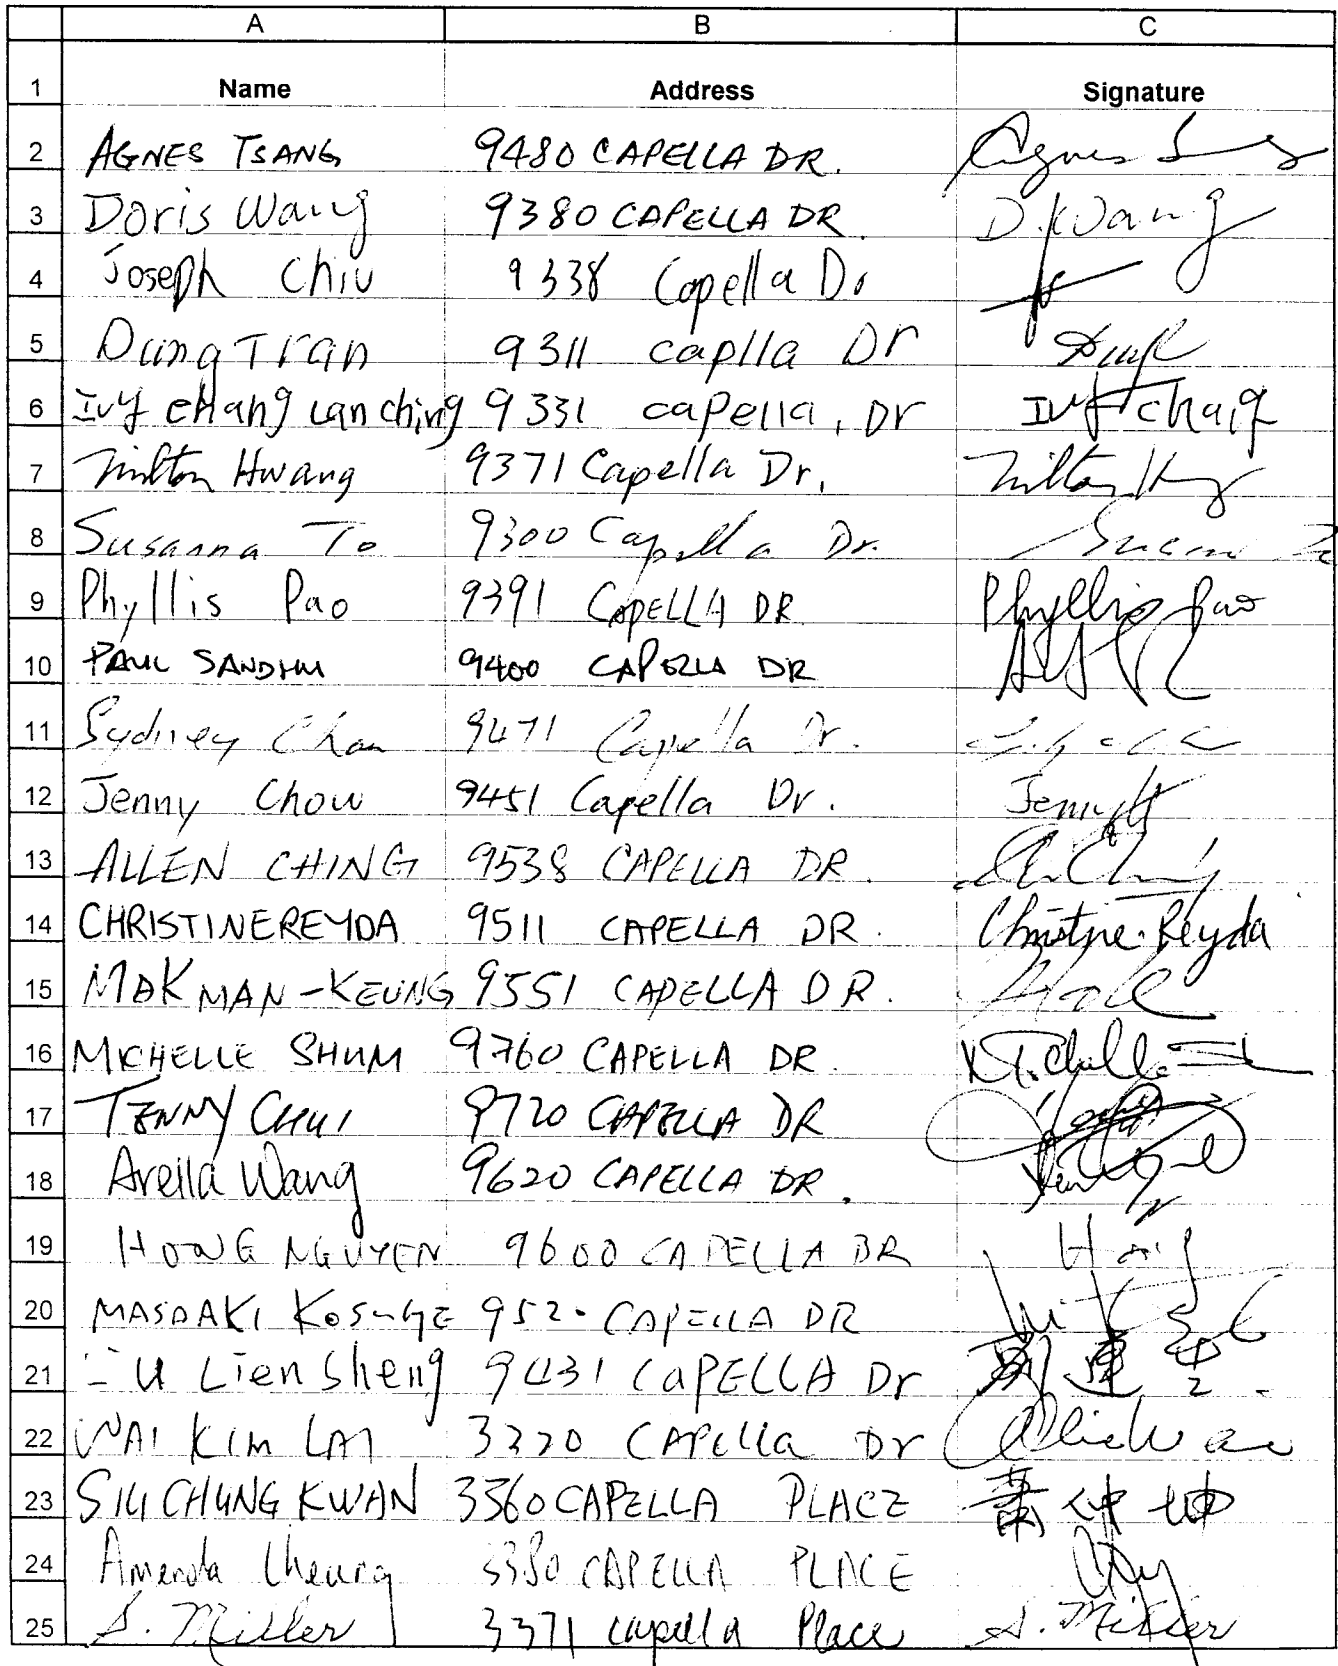 A B C
1 Name Address Signature
2 AGNES TSANG 9480 CAPELLA DR. Agnes
3 Doris Wang 9380 CAPELLA DR. D. Wang
4 Joseph Chiu 9338 Capella Dr
5 Dung Tran 9311 caplla Dr
6 Ivy cHang Lan ching 9331 capella, Dr Ivy Chang
7 Milton Hwang 9371 Capella Dr. Milton
8 Susanna To 9300 Capella Dr.
9 Phyllis Pao 9391 CAPELLA DR Phyllis Pao
10 PAUL SANDHU 9400 CAPELLA DR
11 Sydney Chan 9471 Capella Dr.
12 Jenny Chow 9451 Capella Dr. Jenny
13 ALLEN CHING 9538 CAPELLA DR.
14 CHRISTINE REYDA 9511 CAPELLA DR. Christine Reyda
15 MAK MAN-KEUNG 9551 CAPELLA DR.
16 MICHELLE SHUM 9760 CAPELLA DR. Michelle
17 CHUI 9720 CAPELLA DR
18 Arella Wang 9620 CAPELLA DR.
19 HONG NGUYEN 9600 CAPELLA DR Hong
20 MASAAKI KOSUGE 9520 CAPELLA DR
21 Lien Sheng 9431 CAPELLA Dr
22 WAI KIM LAI 3320 CAPElla Dr
23 SIU CHUNG KWAN 3360 CAPELLA PLACE 萧仲坤
24 Amenda Cheung 3380 CAPELLA PLACE
25 S. Miller 3371 capella Place S. Miller